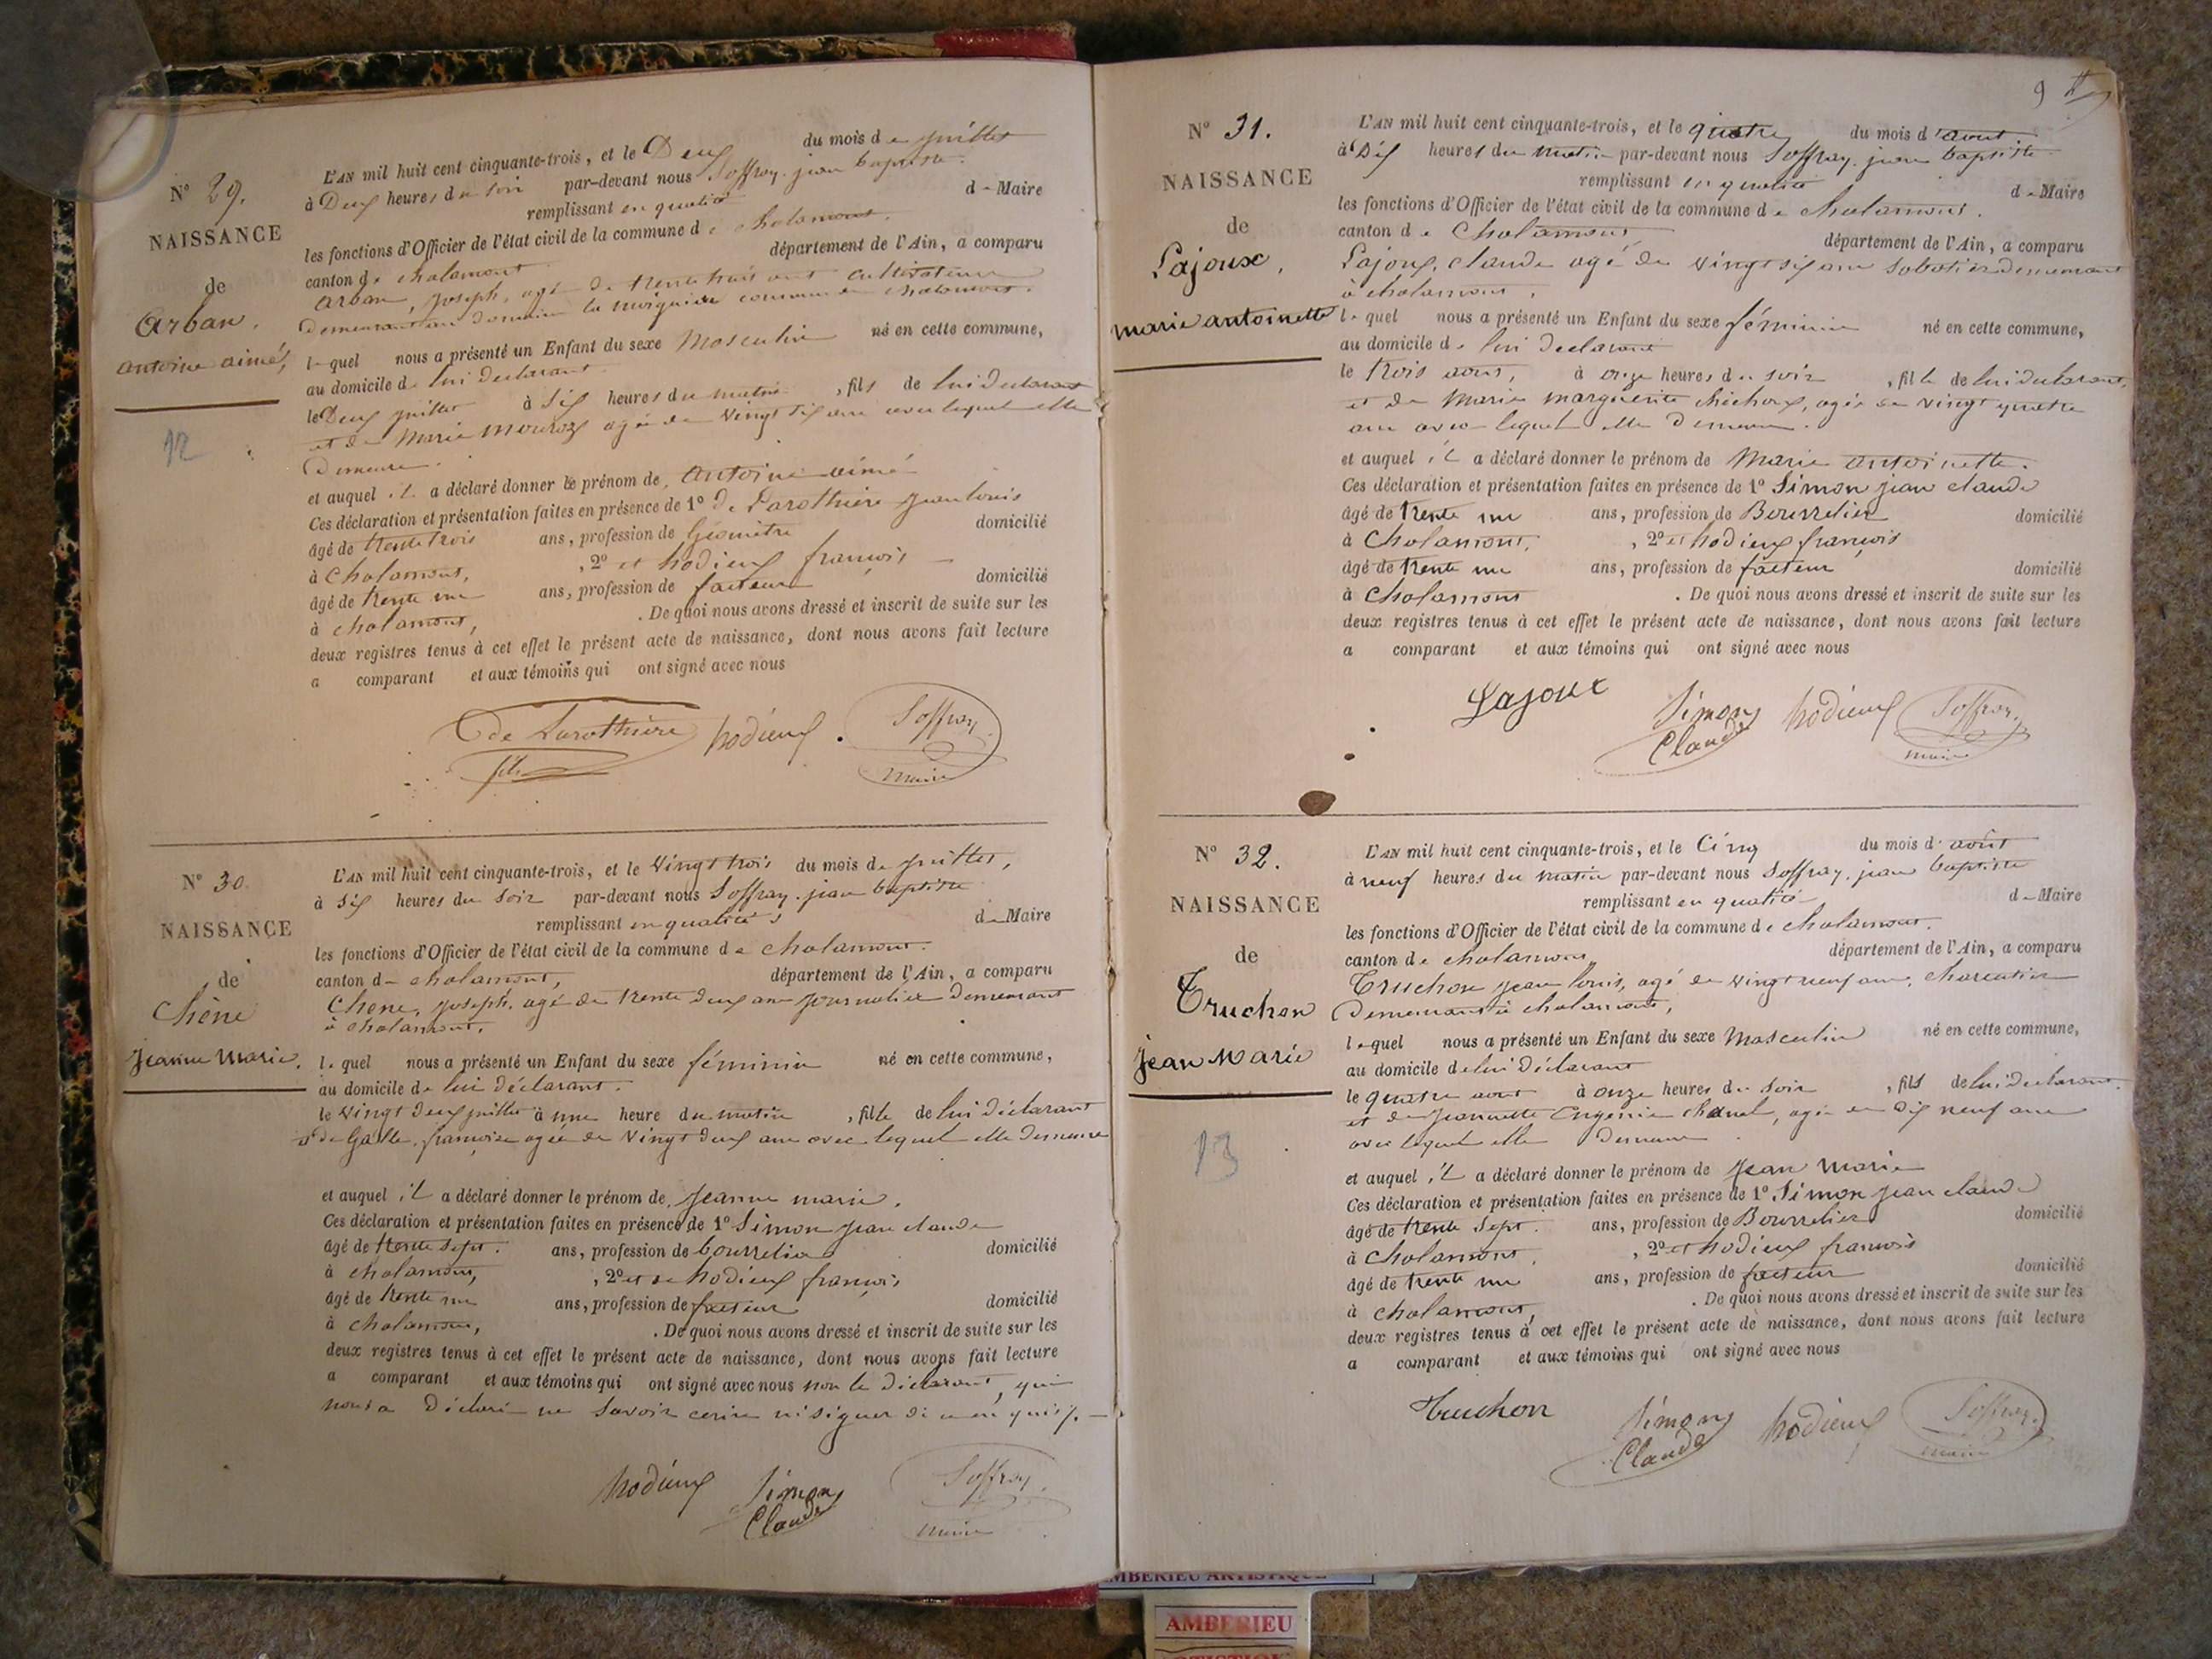 N° 29.
NAISSANCE
de
Arban,
antoine aimé,
12
L'AN mil huit cent cinquante-trois, et le Deux du mois de juillet
à Deux heures du soir par-devant nous Soffray. jean baptiste.
remplissant en qualité de Maire
les fonctions d'Officier de l'état civil de la commune de chalamont.
canton de chalamont département de l'Ain, a comparu
arban, joseph, agé de trente huit ans cultivateur
Demeurant au domaine la commune de chalamont.
lequel nous a présenté un Enfant du sexe Masculin né en cette commune,
au domicile de lui déclarant.
le Deux juillet à Six heures du matin, fils de lui déclarant
et de Marie agée de vingt six ans avec lequel elle
Demeure.
et auquel il a déclaré donner le prénom de, antoine aimé
Ces déclaration et présentation faites en présence de 1° De Larothière jean louis
âgé de trente trois ans, profession de Géomètre domicilié
à Chalamont, , 2° et hodieux françois
âgé de trente un ans, profession de facteur domicilié
à chalamont, . De quoi nous avons dressé et inscrit de suite sur les
deux registres tenus à cet effet le présent acte de naissance, dont nous avons fait lecture
a comparant et aux témoins qui ont signé avec nous
de Larothière hodieux. Soffray
fils maire
N° 30.
NAISSANCE
de
Chêne
Jeanne Marie.
L'AN mil huit cent cinquante-trois, et le vingt trois du mois de juillet,
à Six heures du Soir par-devant nous Soffray. jean baptiste
remplissant en qualité de Maire
les fonctions d'Officier de l'état civil de la commune de chalamont.
canton de chalamont, département de l'Ain, a comparu
Chene, joseph, agé de trente deux ans journalier Demeurant
à chalamont.
lequel nous a présenté un Enfant du sexe féminin né en cette commune,
au domicile de lui déclarant.
le vingt deux juillet à une heure du matin, fille de lui déclarant
& de Galle, françoise agée de vingt deux ans avec lequel elle demeure
et auquel il a déclaré donner le prénom de, Jeanne marie.
Ces déclaration et présentation faites en présence de 1° Simon jean claude
âgé de trente sept. ans, profession de bourrelier domicilié
à chalamont, , 2° et de hodieux françois
âgé de trente un ans, profession de facteur domicilié
à chalamont, . De quoi nous avons dressé et inscrit de suite sur les
deux registres tenus à cet effet le présent acte de naissance, dont nous avons fait lecture
a comparant et aux témoins qui ont signé avec nous non le déclarant, qui
nous a déclaré ne Savoir ecrire ni signer de ce enquis
hodieux Simon Soffray
Claude maire
9
N° 31.
NAISSANCE
de
Lajoux,
marie antoinette
L'AN mil huit cent cinquante-trois, et le quatre du mois d'aout
à Dix heures du matin par-devant nous Soffray. jean baptiste
remplissant en qualité de Maire
les fonctions d'Officier de l'état civil de la commune de chalamont.
canton de Chalamont département de l'Ain, a comparu
Lajoux, claude agé de vingt six ans Sabotier demeurant
à chalamont,
lequel nous a présenté un Enfant du sexe féminin né en cette commune,
au domicile de lui déclarant
le trois aout, à onze heures du soir, fille de lui déclarant,
et de Marie marguerite chichoux, agée de vingt quatre
ans avec lequel elle demeure.
et auquel il a déclaré donner le prénom de Marie antoinette.
Ces déclaration et présentation faites en présence de 1° Simon jean claude
âgé de trente un ans, profession de Bourrelier domicilié
à Chalamont, , 2° et hodieux françois
âgé de trente un ans, profession de facteur domicilié
à Chalamont . De quoi nous avons dressé et inscrit de suite sur les
deux registres tenus à cet effet le présent acte de naissance, dont nous avons fait lecture
a comparant et aux témoins qui ont signé avec nous
Lajoux Simon hodieux Soffray
Claude maire
N° 32.
NAISSANCE
de
Truchon
Jean Marie
13
L'AN mil huit cent cinquante-trois, et le Cinq du mois d'août
à neuf heures du matin par-devant nous Soffray. jean baptiste
remplissant en qualité de Maire
les fonctions d'Officier de l'état civil de la commune de chalamont.
canton de chalamont département de l'Ain, a comparu
Truchon jean louis, agé de vingt neuf ans, charcutier
Demeurant à chalamont,
lequel nous a présenté un Enfant du sexe Masculin né en cette commune,
au domicile de lui déclarant
le quatre aout à onze heures du soir, fils de lui déclarant.
et de jeannette Eugenie chanel, agée de dix neuf ans
avec lequel elle Demeure.
et auquel il a déclaré donner le prénom de Jean Marie
Ces déclaration et présentation faites en présence de 1° Simon jean claude
âgé de trente sept. ans, profession de Bourrelier domicilié
à Chalamont, , 2° et hodieux françois
âgé de trente un ans, profession de facteur domicilié
à chalamont, . De quoi nous avons dressé et inscrit de suite sur les
deux registres tenus à cet effet le présent acte de naissance, dont nous avons fait lecture
a comparant et aux témoins qui ont signé avec nous
Truchon Simon hodieux Soffray
Claude maire
AMBERIEU ARTISTIQUE
AMBERIEU